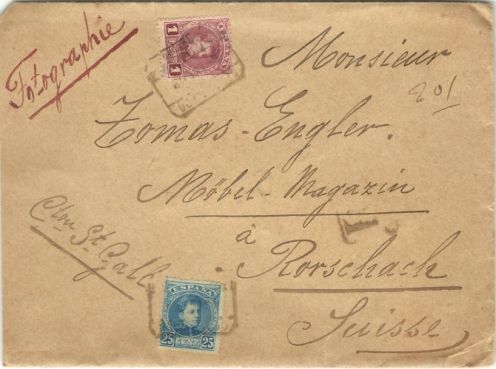 Fotographie
Monsieur
201
Tomas-Engler.
Möbel-Magazin
à
Rorschach
Suisse
Cton St. Gall
1 1
ESPAÑA
ESPAÑA
25 CENT. 25
T